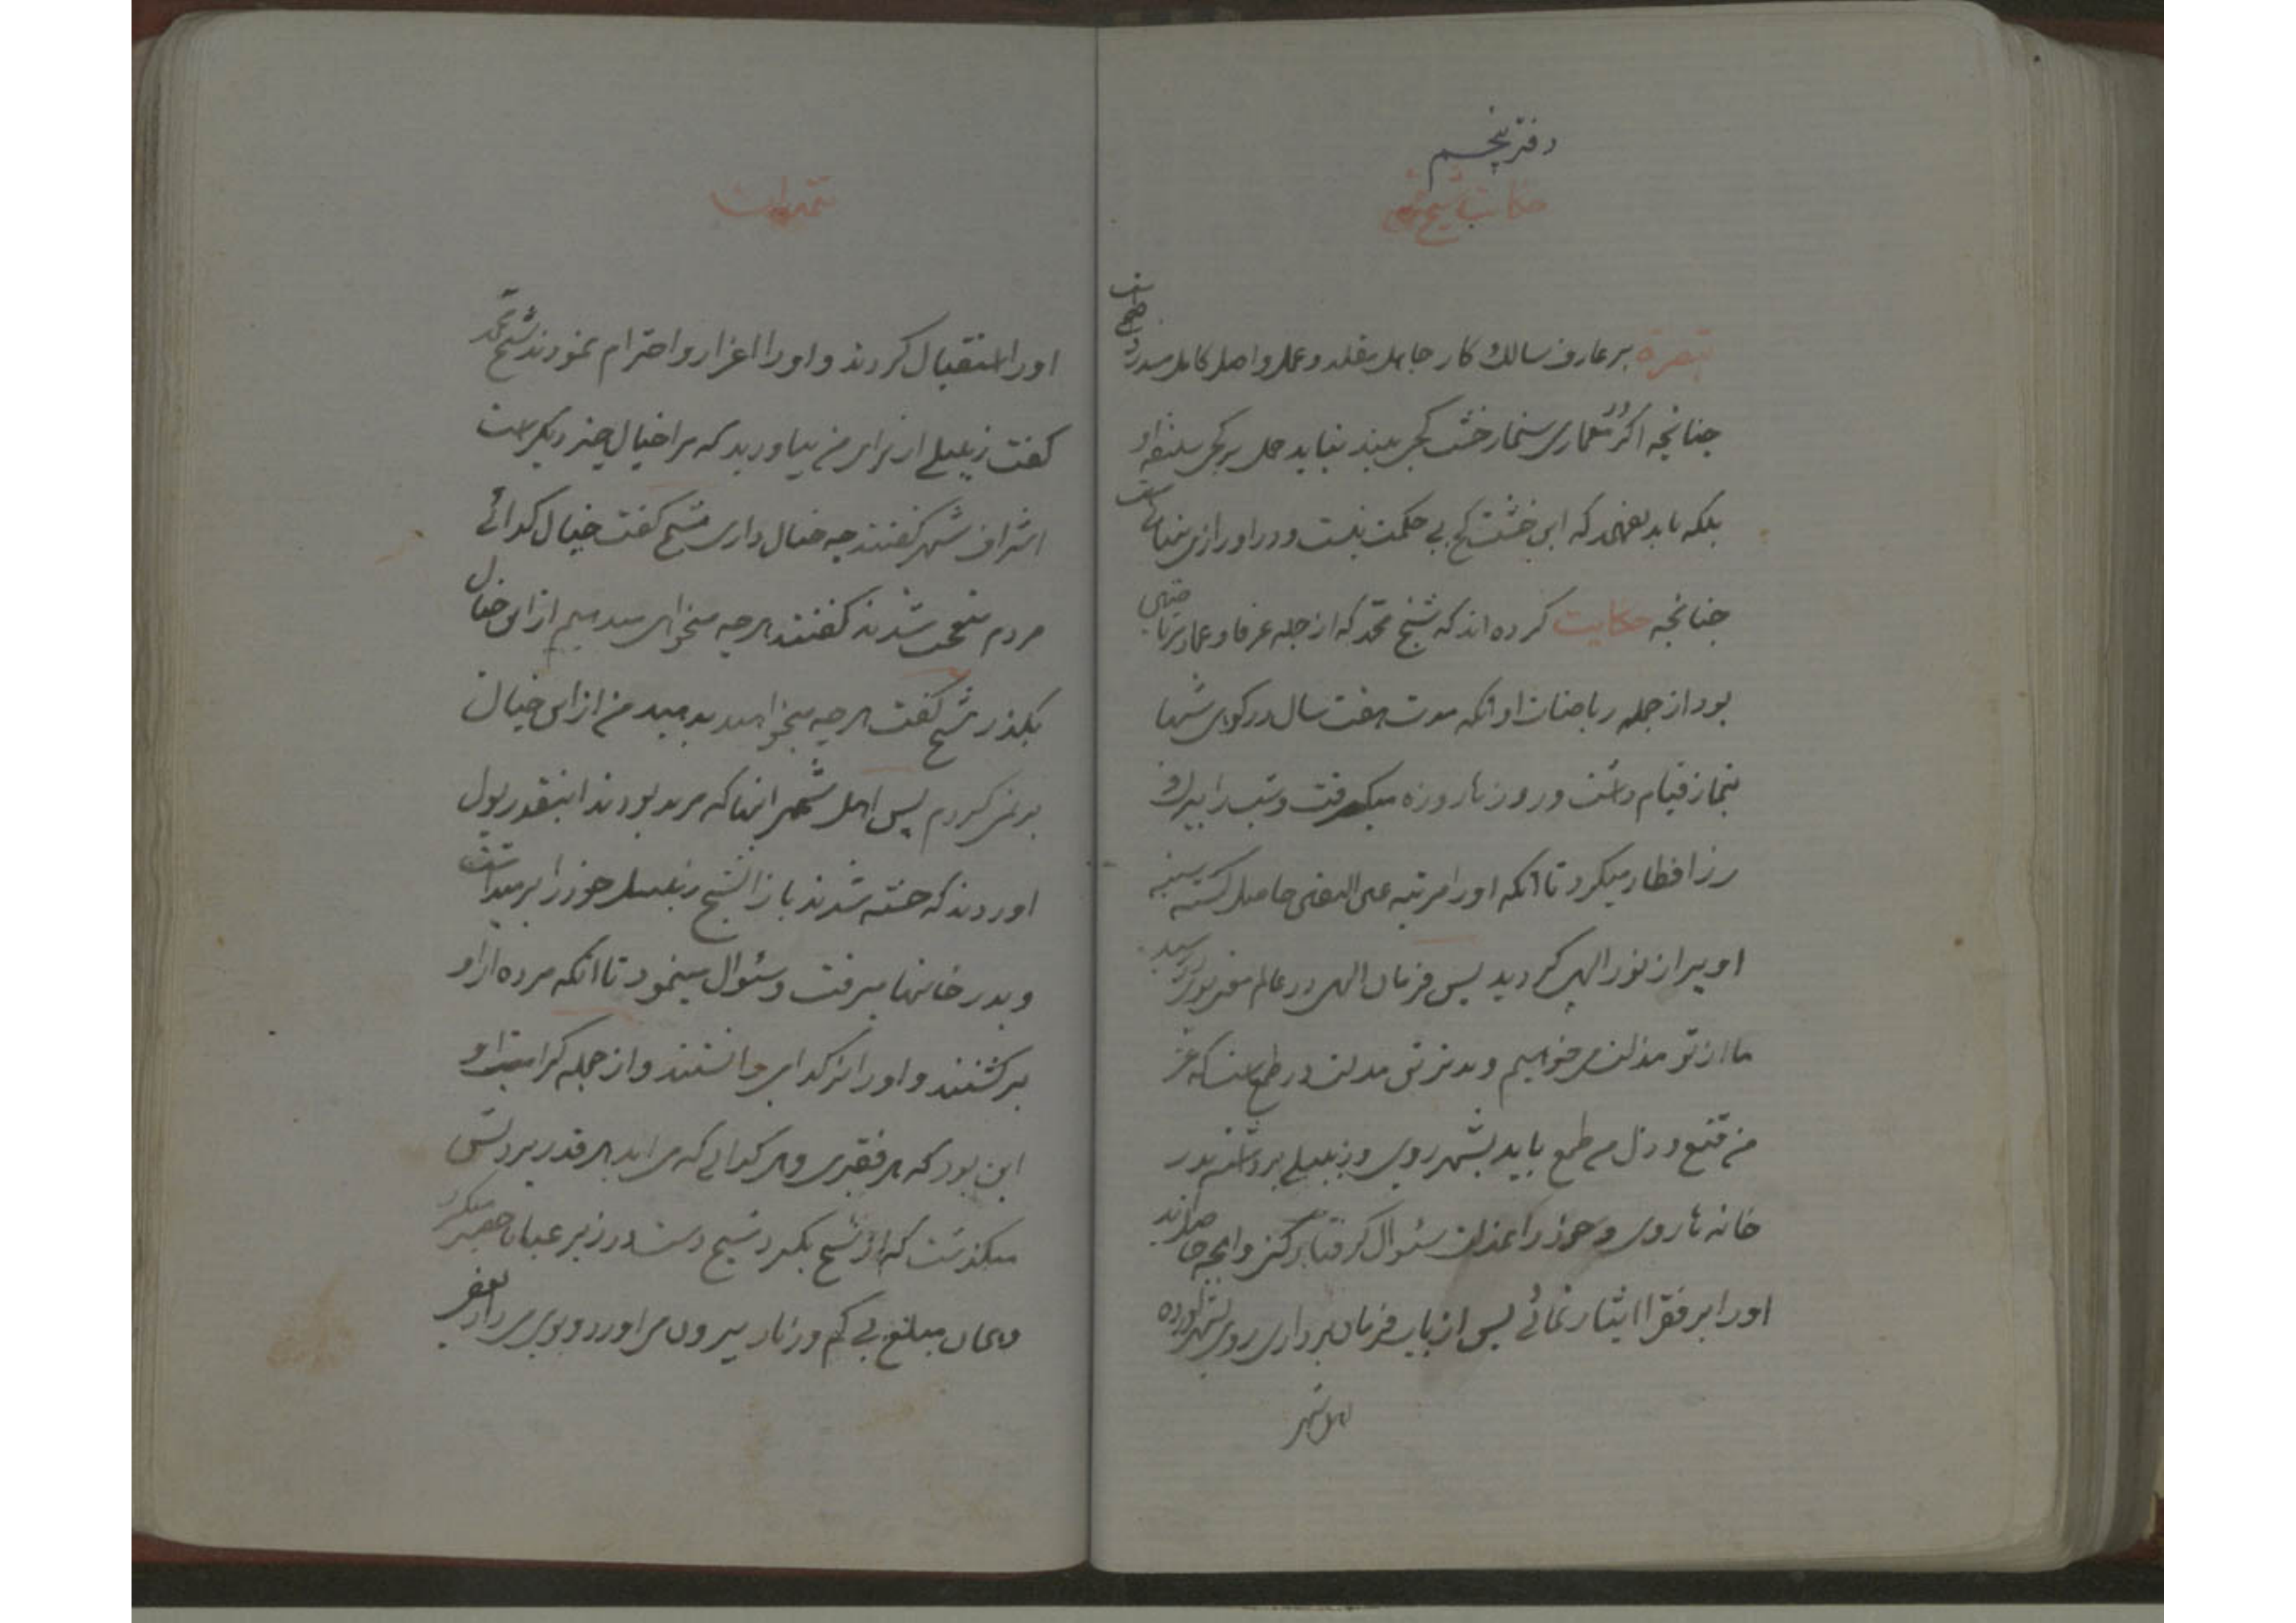 دفتر پنجم
حکایت شیخ
تبصره بر عارف سالک کار جاهل مقلد و عمل واصل کامل
چنانچه اگر در معماری سنمار خشت کجی بیند نباید حمل بر کجی سلیقه او
بلکه باید بفهمد که این خشت کج بی حکمت نیست و در او رازی
چنانچه حکایت کرده اند که شیخ محمد که از جمله عرفا و عباد
بود از جمله ریاضات او آنکه مدت هفت سال در کوی شبها
بنماز قیام داشت و روزها روزه میگرفت و شب را ببرک
رز افطار میکرد تا آنکه او را مرتبه عین الیقین حاصل گشته سینه
او پر از نور الهی گردید پس فرمان الهی در عالم معنی رسید
ما از تو مذلت میخواهیم و بدترین مذلت در طمع است که عز
من قنع و ذل من طمع باید بشهر روی و زنبیلی برداشته بدر
خانه ها روی و خود را بمذلت سئوال گرفتار کنی و آنچه حاصل آید
او را بر فقرا ایثار نمائی پس از باب فرمان برداری روی بشهر آورده
اهل شهر
او را استقبال کردند و او را اعزاز و احترام نمودند شیخ محمد
گفت زنبیلی از برای من بیاورید که مرا خیال چیز دیگر است
اشراف شهر گفتند چه خیال داری شیخ گفت خیال گدائی
مردم متعجب شدند گفتند هر چه میخواهی میدهیم از این خیال
بگذر شیخ گفت هر چه میخواهید بدهید من از این خیال
بر نمیگردم پس اهل شهر آنها که مرید بودند اینقدر پول
اوردند که خسته شدند باز الشیخ زنبیل خود را برمیداشت
و بدر خانها میرفت و سئوال مینمود تا آنکه مرده از او
برگشتند و او را گدای دانستند و از جمله کرامت او
این بود که هر فقیری و هر گدائی که می آید هر قدر بر دلش
میگذشت که از شیخ بگیرد شیخ دست در زیر عبا میکرد
و همان مبلغ بی کم و زیاد بیرون می آورد و بوی میداد